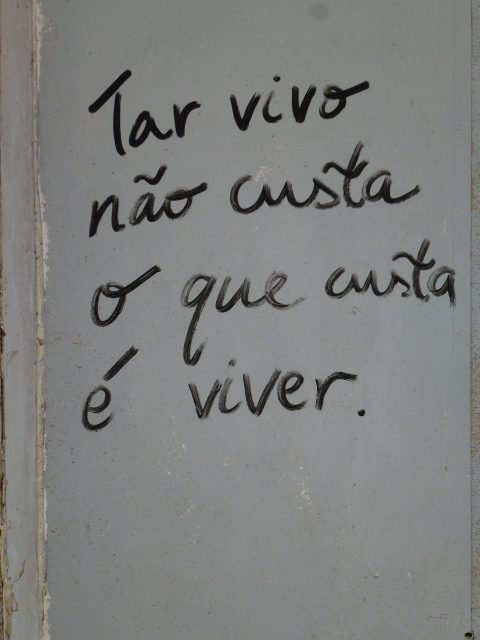 Tar vivo
não custa
o que custa
é viver.